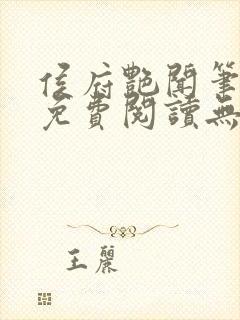 侯府艷聞筆
免費閱讀無
王麗